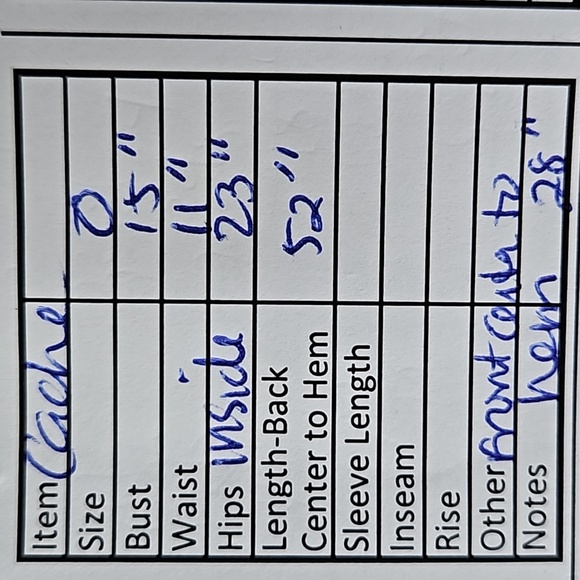 Item Cache
Size 0
Bust 15"
Waist 11"
Hips inside 23"
Length-Back
Center to Hem 52"
Sleeve Length
Inseam
Rise
Other front center to
Notes hem 28"